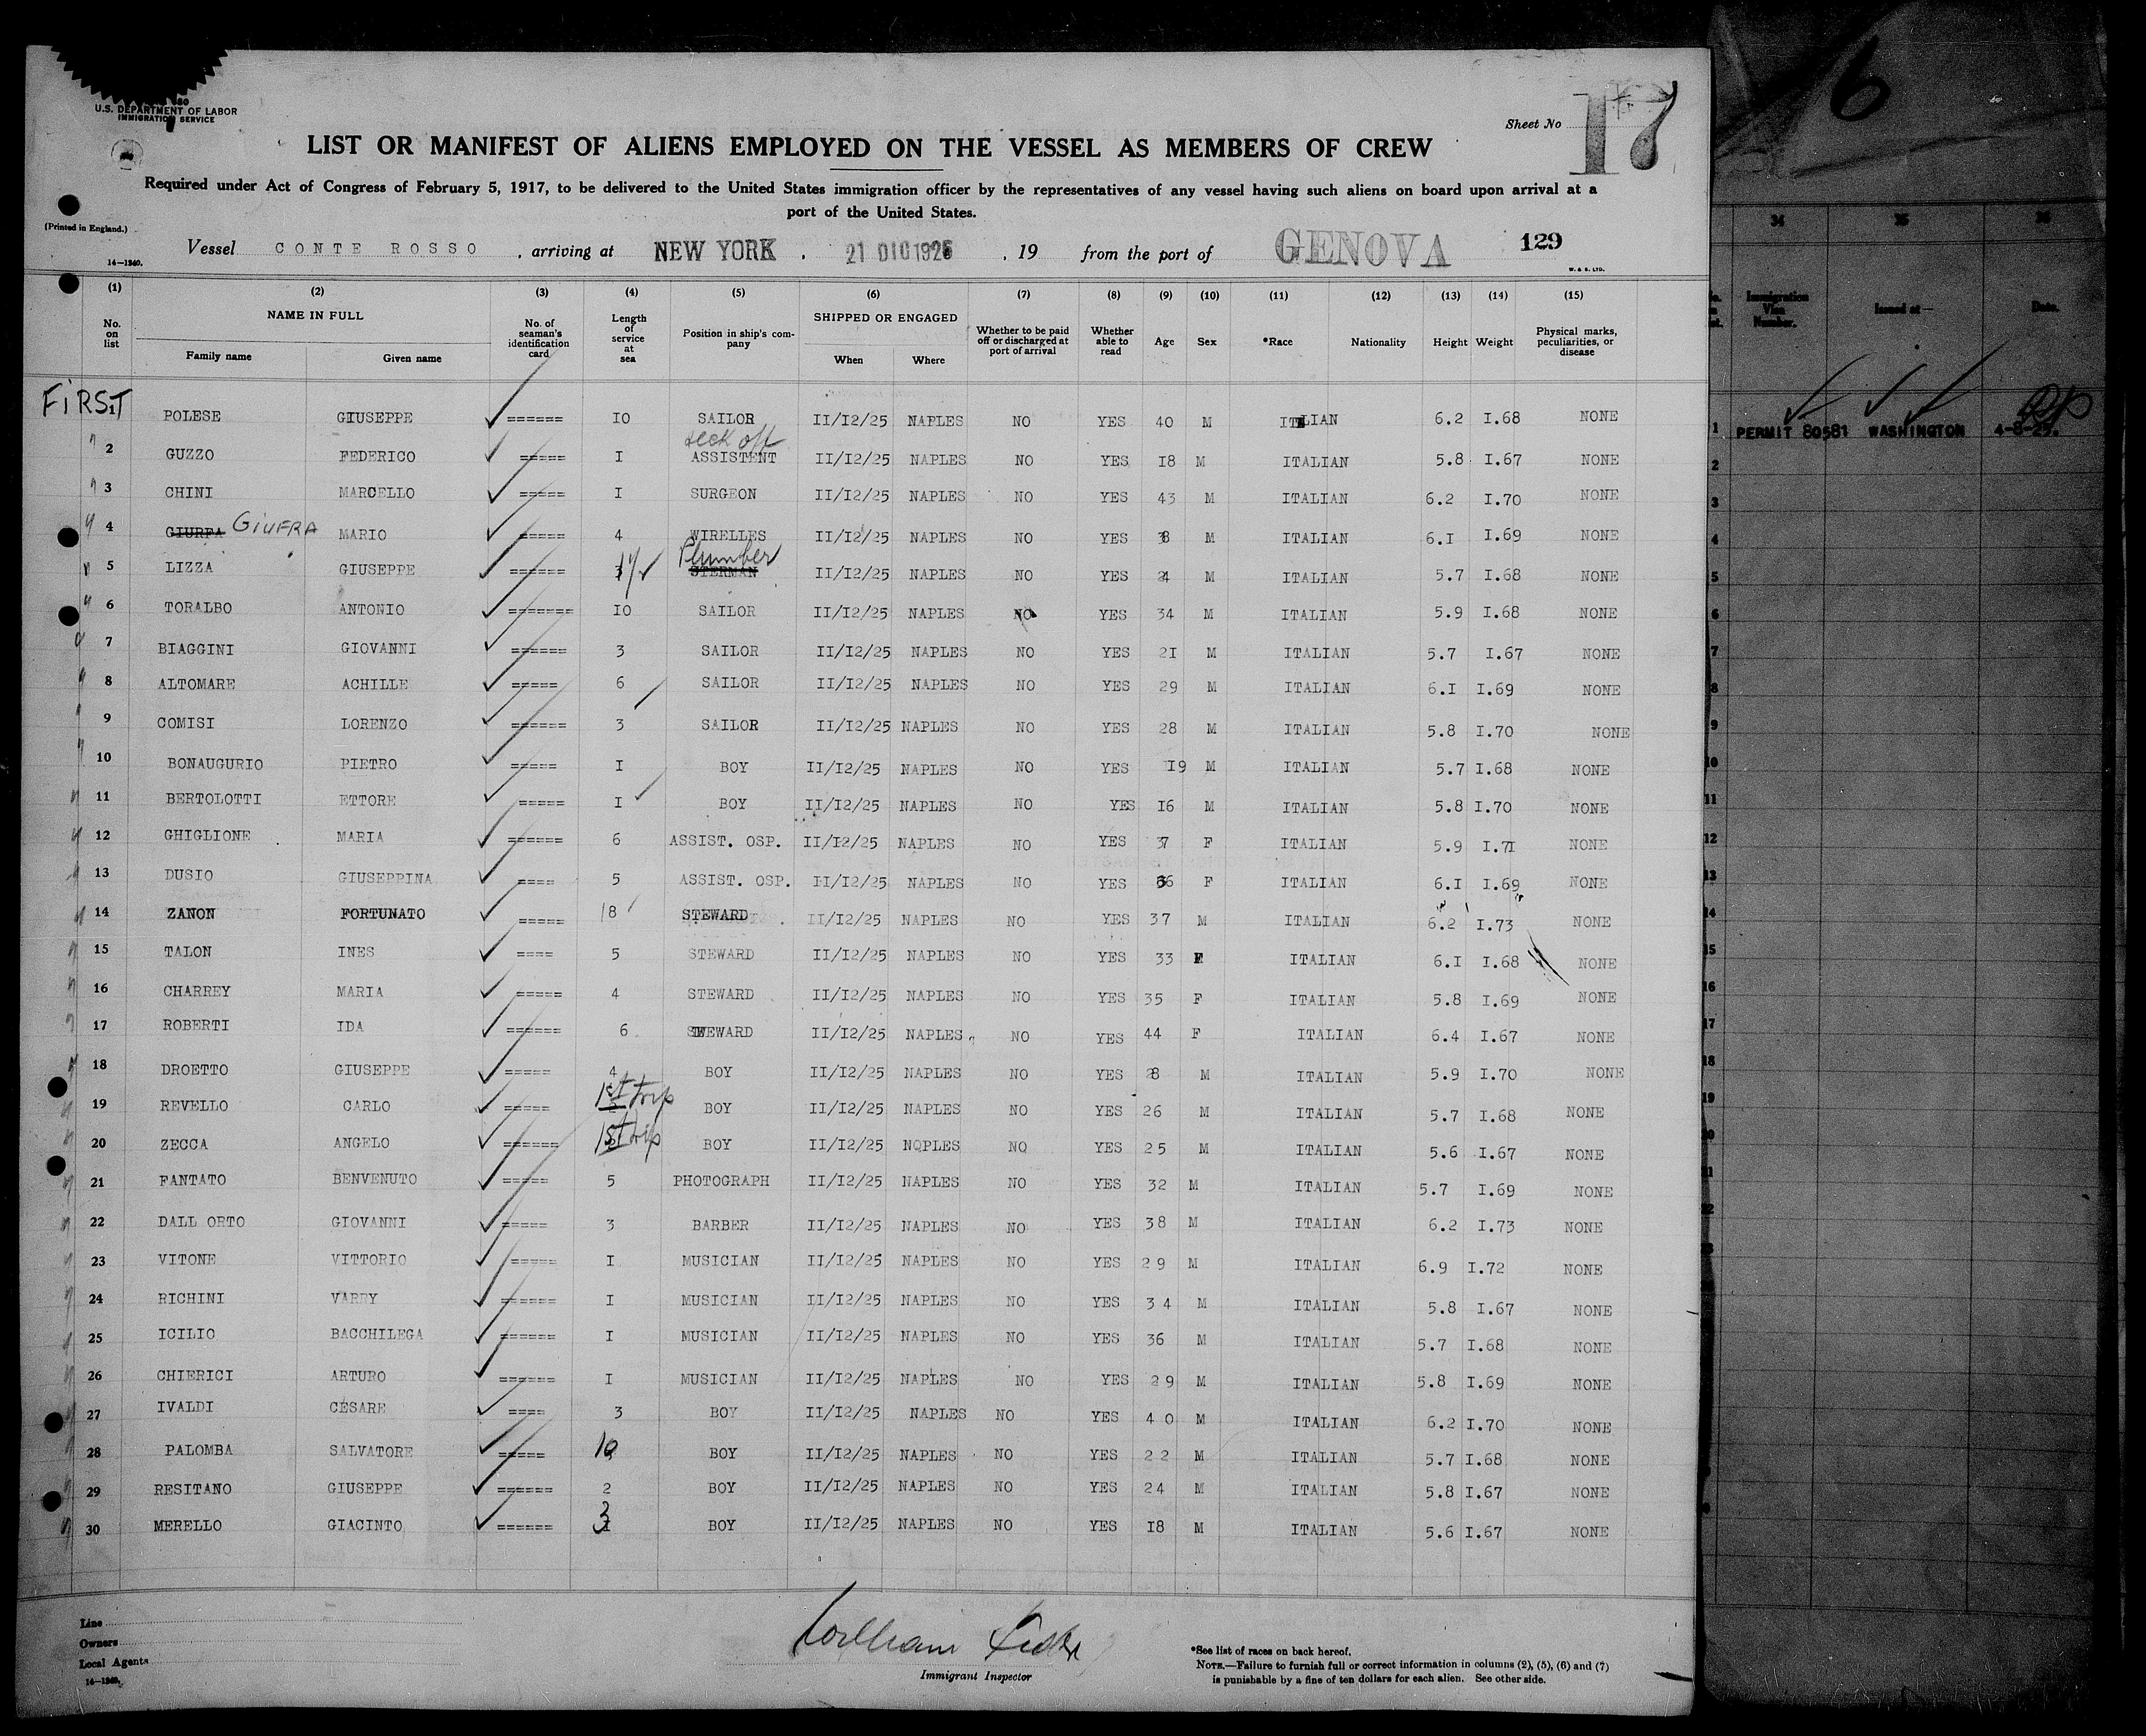 U.S. DEPARTMENT OF LABOR
IMMIGRATION SERVICE
Sheet No 17
LIST OR MANIFEST OF ALIENS EMPLOYED ON THE VESSEL AS MEMBERS OF CREW
Required under Act of Congress of February 5, 1917, to be delivered to the United States immigration officer by the representatives of any vessel having such aliens on board upon arrival at a
port of the United States.
(Printed in England.)
Vessel CONTE ROSSO , arriving at NEW YORK , 21 DIC 1925 , 19 from the port of GENOVA 129
14—1240. W. & S. LTD.
(1) (2) (3) (4) (5) (6) (7) (8) (9) (10) (11) (12) (13) (14) (15)
No. on list NAME IN FULL Family name Given name No. of seaman's identification card Length of service at sea Position in ship's company SHIPPED OR ENGAGED When Where Whether to be paid off or discharged at port of arrival Whether able to read Age Sex *Race Nationality Height Weight Physical marks, peculiarities, or disease
FIRST
1 POLESE GIUSEPPE ====== IO SAILOR II/I2/25 NAPLES NO YES 40 M ITALIAN 6.2 I.68 NONE
2 GUZZO FEDERICO ===== I deck off ASSISTENT II/I2/25 NAPLES NO YES I8 M ITALIAN 5.8 I.67 NONE
3 CHINI MARCELLO ===== I SURGEON II/I2/25 NAPLES NO YES 43 M ITALIAN 6.2 I.70 NONE
4 GIURFA GIUFRA MARIO ===== 4 WIRELLES II/I2/25 NAPLES NO YES 38 M ITALIAN 6.I I.69 NONE
5 LIZZA GIUSEPPE ====== Plumber STERMAN II/I2/25 NAPLES NO YES 24 M ITALIAN 5.7 I.68 NONE
6 TORALBO ANTONIO ======= IO SAILOR II/I2/25 NAPLES NO YES 34 M ITALIAN 5.9 I.68 NONE
7 BIAGGINI GIOVANNI ====== 3 SAILOR II/I2/25 NAPLES NO YES 2I M ITALIAN 5.7 I.67 NONE
8 ALTOMARE ACHILLE ===== 6 SAILOR II/I2/25 NAPLES NO YES 29 M ITALIAN 6.I I.69 NONE
9 COMISI LORENZO ====== 3 SAILOR II/I2/25 NAPLES NO YES 28 M ITALIAN 5.8 I.70 NONE
10 BONAUGURIO PIETRO ===== I BOY II/I2/25 NAPLES NO YES I9 M ITALIAN 5.7 I.68 NONE
11 BERTOLOTTI ETTORE ===== I BOY II/I2/25 NAPLES NO YES I6 M ITALIAN 5.8 I.70 NONE
12 GHIGLIONE MARIA ====== 6 ASSIST. OSP. II/I2/25 NAPLES NO YES 37 F ITALIAN 5.9 I.7I NONE
13 DUSIO GIUSEPPINA ==== 5 ASSIST. OSP. II/I2/25 NAPLES NO YES 36 F ITALIAN 6.I I.69 NONE
14 ZANON FORTUNATO ===== 18 STEWARD II/I2/25 NAPLES NO YES 37 M ITALIAN 6.2 I.73 NONE
15 TALON INES ==== 5 STEWARD II/I2/25 NAPLES NO YES 33 F ITALIAN 6.I I.68 NONE
16 CHARREY MARIA ===== 4 STEWARD II/I2/25 NAPLES NO YES 35 F ITALIAN 5.8 I.69 NONE
17 ROBERTI IDA ====== 6 STEWARD II/I2/25 NAPLES NO YES 44 F ITALIAN 6.4 I.67 NONE
18 DROETTO GIUSEPPE ===== 4 BOY II/I2/25 NAPLES NO YES 28 M ITALIAN 5.9 I.70 NONE
19 REVELLO CARLO ===== 1st trip BOY II/I2/25 NAPLES NO YES 26 M ITALIAN 5.7 I.68 NONE
20 ZECCA ANGELO ====== 1st trip BOY II/I2/25 NQPLES NO YES 25 M ITALIAN 5.6 I.67 NONE
21 FANTATO BENVENUTO ===== 5 PHOTOGRAPH II/I2/25 NAPLES NO YES 32 M ITALIAN 5.7 I.69 NONE
22 DALL ORTO GIOVANNI ===== 3 BARBER II/I2/25 NAPLES NO YES 38 M ITALIAN 6.2 I.73 NONE
23 VITONE VITTORIO ===== I MUSICIAN II/I2/25 NAPLES NO YES 29 M ITALIAN 6.9 I.72 NONE
24 RICHINI VARRY ====== I MUSICIAN II/I2/25 NAPLES NO YES 34 M ITALIAN 5.8 I.67 NONE
25 ICILIO BACCHILEGA ====== I MUSICIAN II/I2/25 NAPLES NO YES 36 M ITALIAN 5.7 I.68 NONE
26 CHIERICI ARTURO ====== I MUSICIAN II/I2/25 NAPLES NO YES 29 M ITALIAN 5.8 I.69 NONE
27 IVALDI CESARE ==== 3 BOY II/I2/25 NAPLES NO YES 40 M ITALIAN 6.2 I.70 NONE
28 PALOMBA SALVATORE ===== 10 BOY II/I2/25 NAPLES NO YES 22 M ITALIAN 5.7 I.68 NONE
29 RESITANO GIUSEPPE ====== 2 BOY II/I2/25 NAPLES NO YES 24 M ITALIAN 5.8 I.67 NONE
30 MERELLO GIACINTO ====== 3 BOY II/I2/25 NAPLES NO YES I8 M ITALIAN 5.6 I.67 NONE
Line
Owners
Local Agents
14—1240.
William
Immigrant Inspector
*See list of races on back hereof.
NOTE.—Failure to furnish full or correct information in columns (2), (5), (6) and (7)
is punishable by a fine of ten dollars for each alien. See other side.
6
34 35 36
Immigration Visa Number. Issued at— Date.
1 PERMIT 80581 WASHINGTON 4-8-25.
2
3
4
5
6
7
8
9
10
11
12
13
14
15
16
17
18
19